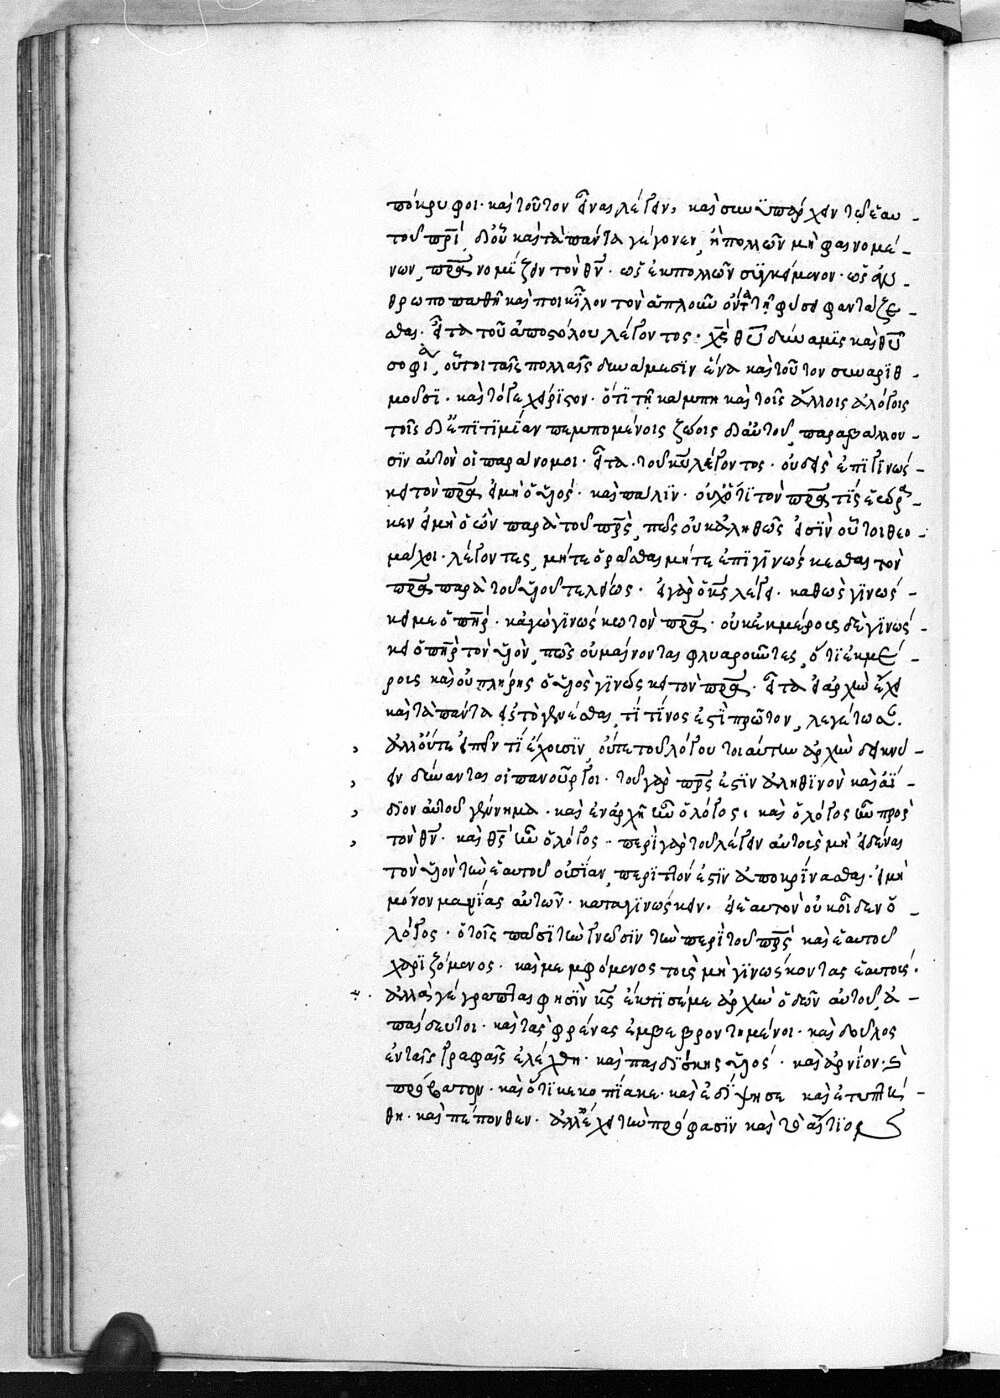 πόκρυφοι· καὶ τοῦτον εἶναι λέγειν, καὶ συνϋπάρχειν τῶ ἑαυ-
τοῦ πρὶ, δι' οὗ καὶ τὰ πάντα γέγονεν, ἢ πολλῶν μὴ φαινομέ-
νων, πρας νομίζειν τὸν θν· ὡς ἐκ πολλῶν συγκείμενον· ὡς ἀν-
θρωποπαθῆ καὶ ποικίλον τὸν ἁπλοῦν ὄντα τῆ φύσει φαντάζε-
σθαι· εἶτα τοῦ ἀποστόλου λέγοντος· χς θυ δύναμις καὶ θυ
σοφία, οὗτοι ταῖς πολλαῖς δυνάμεσϊν ἕνα καὶ τοῦτον συναριθ-
μοῦσϊ· καὶ τόγε χεῖρϊστον· ὅτι τῆ κάμπη καὶ τοῖς ἄλλοις ἀλόγοις
τοῖς δι' ἐπϊτϊμίαν πεμπομένοις ζώοις δι' αὐτοῦ, παραβάλλου-
σϊν αὐτὸν οἱ παράνομοι· εἶτα τοῦ κυ λέγοντος· οὐδεὶς ἐπϊγϊνώσ-
κει τὸν πρα εἰ μὴ ὁ υἱός· καὶ πάλϊν· οὐχ' ὅτϊ τὸν πρα τὶς ἑώρα-
κεν εἰ μὴ ὁ ὢν παρὰ τοῦ πρς, πῶς οὐκ ἀληθῶς εἰσϊν οὗτοι θεο-
μάχοι· λέγοντες, μήτε ὁρᾶσθαι μήτε ἐπϊγϊνώσκεσθαι τὸν
πρα παρὰ τοῦ υἱοῦ τελείως· εἰ γὰρ ὁ κς λέγει· καθὼς γϊνώσ-
κει με ὁ πηρ· κἀγὼ γϊνώσκω τὸν πρα· οὐκ ἐκ μέρους δὲ γϊνώσ-
κει ὁ πηρ τὸν υἱὸν, πῶς οὐ μαίνονται φλυαροῦντες, ὅτϊ ἐκ μέ-
ρους καὶ οὐ πλήρης ὁ υἱὸς γϊνώσκει τὸν πρα· εἶτα εἰ ἀρχὴν ἔχει
καὶ τὰ πάντα εἰς τὸ γενέσθαι, τί τίνος ἐστὶ πρῶτον, λεγέτωσαν·
ἀλλ' οὔτε εἰπεῖν τί ἔχουσϊν, οὔτε τοῦ λόγου τοιαύτην ἀρχὴν δεικνύ-
ειν δύνανται οἱ πανοῦργοι· τοῦ γὰρ πρς ἐστϊν ἀληθϊνὸν καὶ ἀΐ-
διον αὐτοῦ γέννημα· καὶ ἐν ἀρχῆ ἦν ὁ λόγος· καὶ ὁ λόγος ἦν πρὸς
τὸν θν· καὶ θς ἦν ὁ λόγος· περὶ γὰρ τοῦ λέγειν αὐτοὺς μὴ εἰδέναι
τὸν υἱὸν τὴν ἑαυτοῦ οὐσίαν, περιττόν ἐστϊν ἀποκρίνασθαι· εἰ μὴ
μόνον μανϊας αὐτῶν· καταγϊνώσκειν· εἰ ἑαυτὸν οὐκ οἶδεν ὁ
λόγος· ὁ τοῖς πᾶσϊ τὴν γνῶσϊν τὴν περὶ τοῦ πρς καὶ ἑαυτοῦ
χαριζόμενος· καὶ μεμφόμενος τοῖς μὴ γϊνώσκοντας ἑαυτούς·
ἀλλὰ γέγραπται φησϊν κς ἔκτϊσέ με ἀρχὴν ὁδῶν αὐτοῦ, ἀ-
παίδευτοι· καὶ τὰς φρένας ἐμβεβροντημένοι· καὶ δοῦλος
ἐν ταῖς γραφαῖς ἐλέχθη· καὶ παιδΐσκης υἱός· καὶ ἀρνίον·
πρόβατον· καὶ ὅτϊ κεκοπίακε· καὶ ἐδίψησε καὶ ἐτυπτή-
θη· καὶ πέπονθεν· ἀλλ' ἔχει τὴν πρόφασϊν καὶ τὸ αἴτϊον